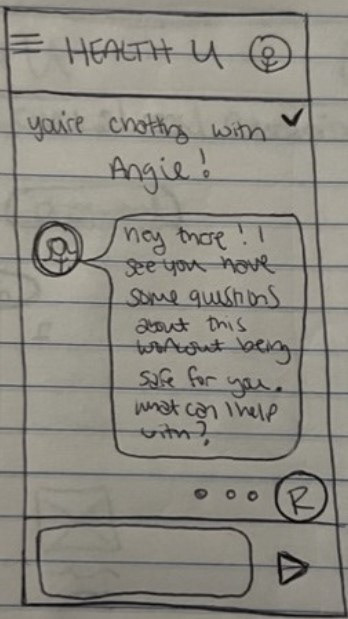 HEALTH U
you're chatting with
Angie!
hey there! I
see you have
some questions
about this
workout being
safe for you.
what can I help
with?
R